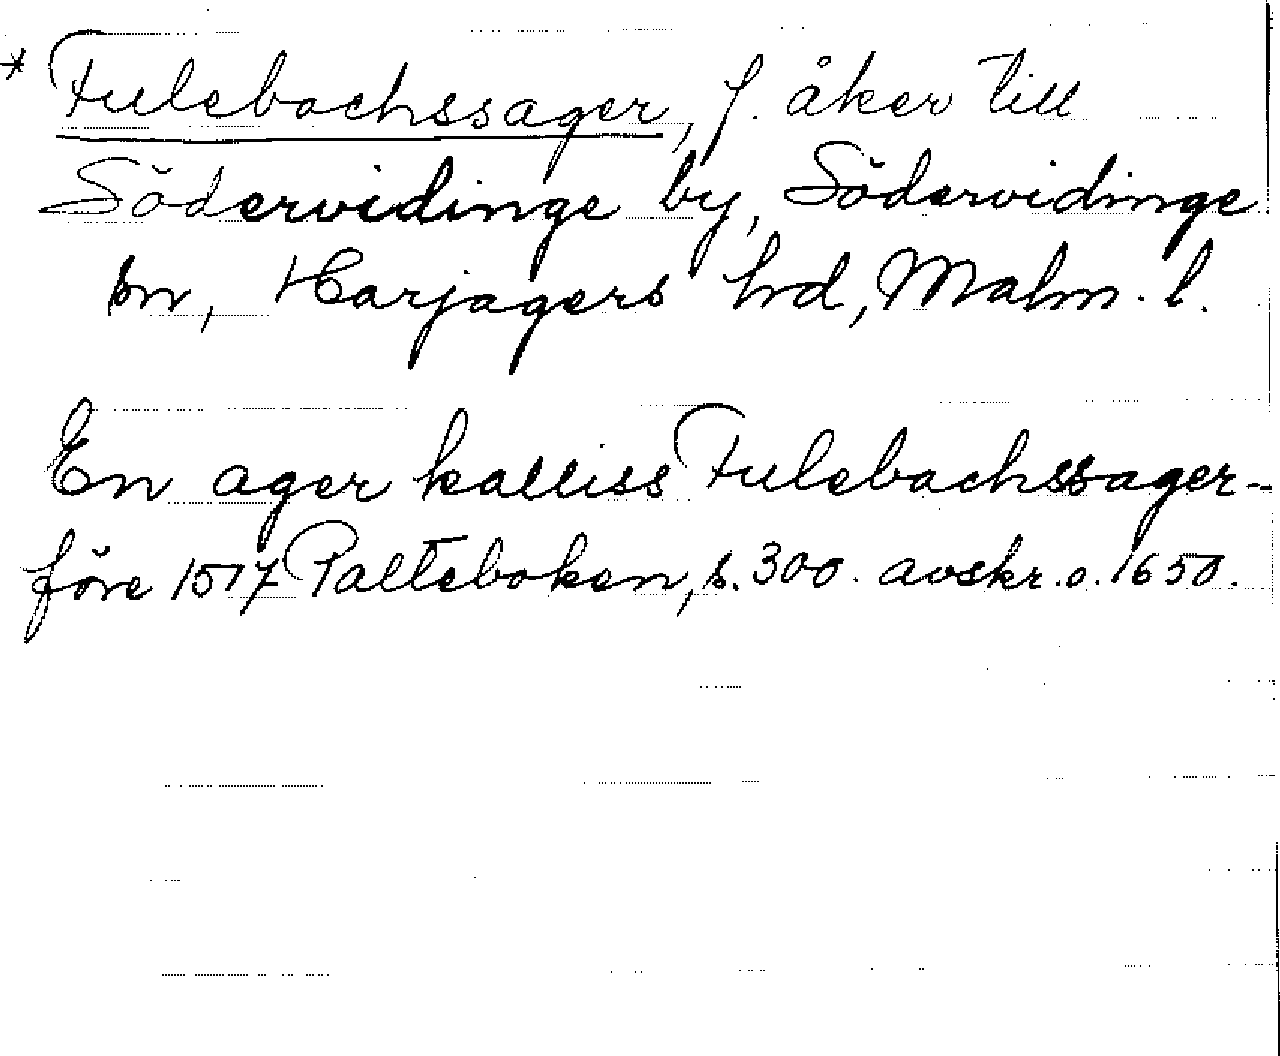 * Fulebachssager, f. åker till
Södervidinge by, Södervidinge
sn, Harjagers hd, Malm. l.
En ager kalliss Fulebachssager -
före 1517 Palteboken, s. 300. avskr. o. 1650.